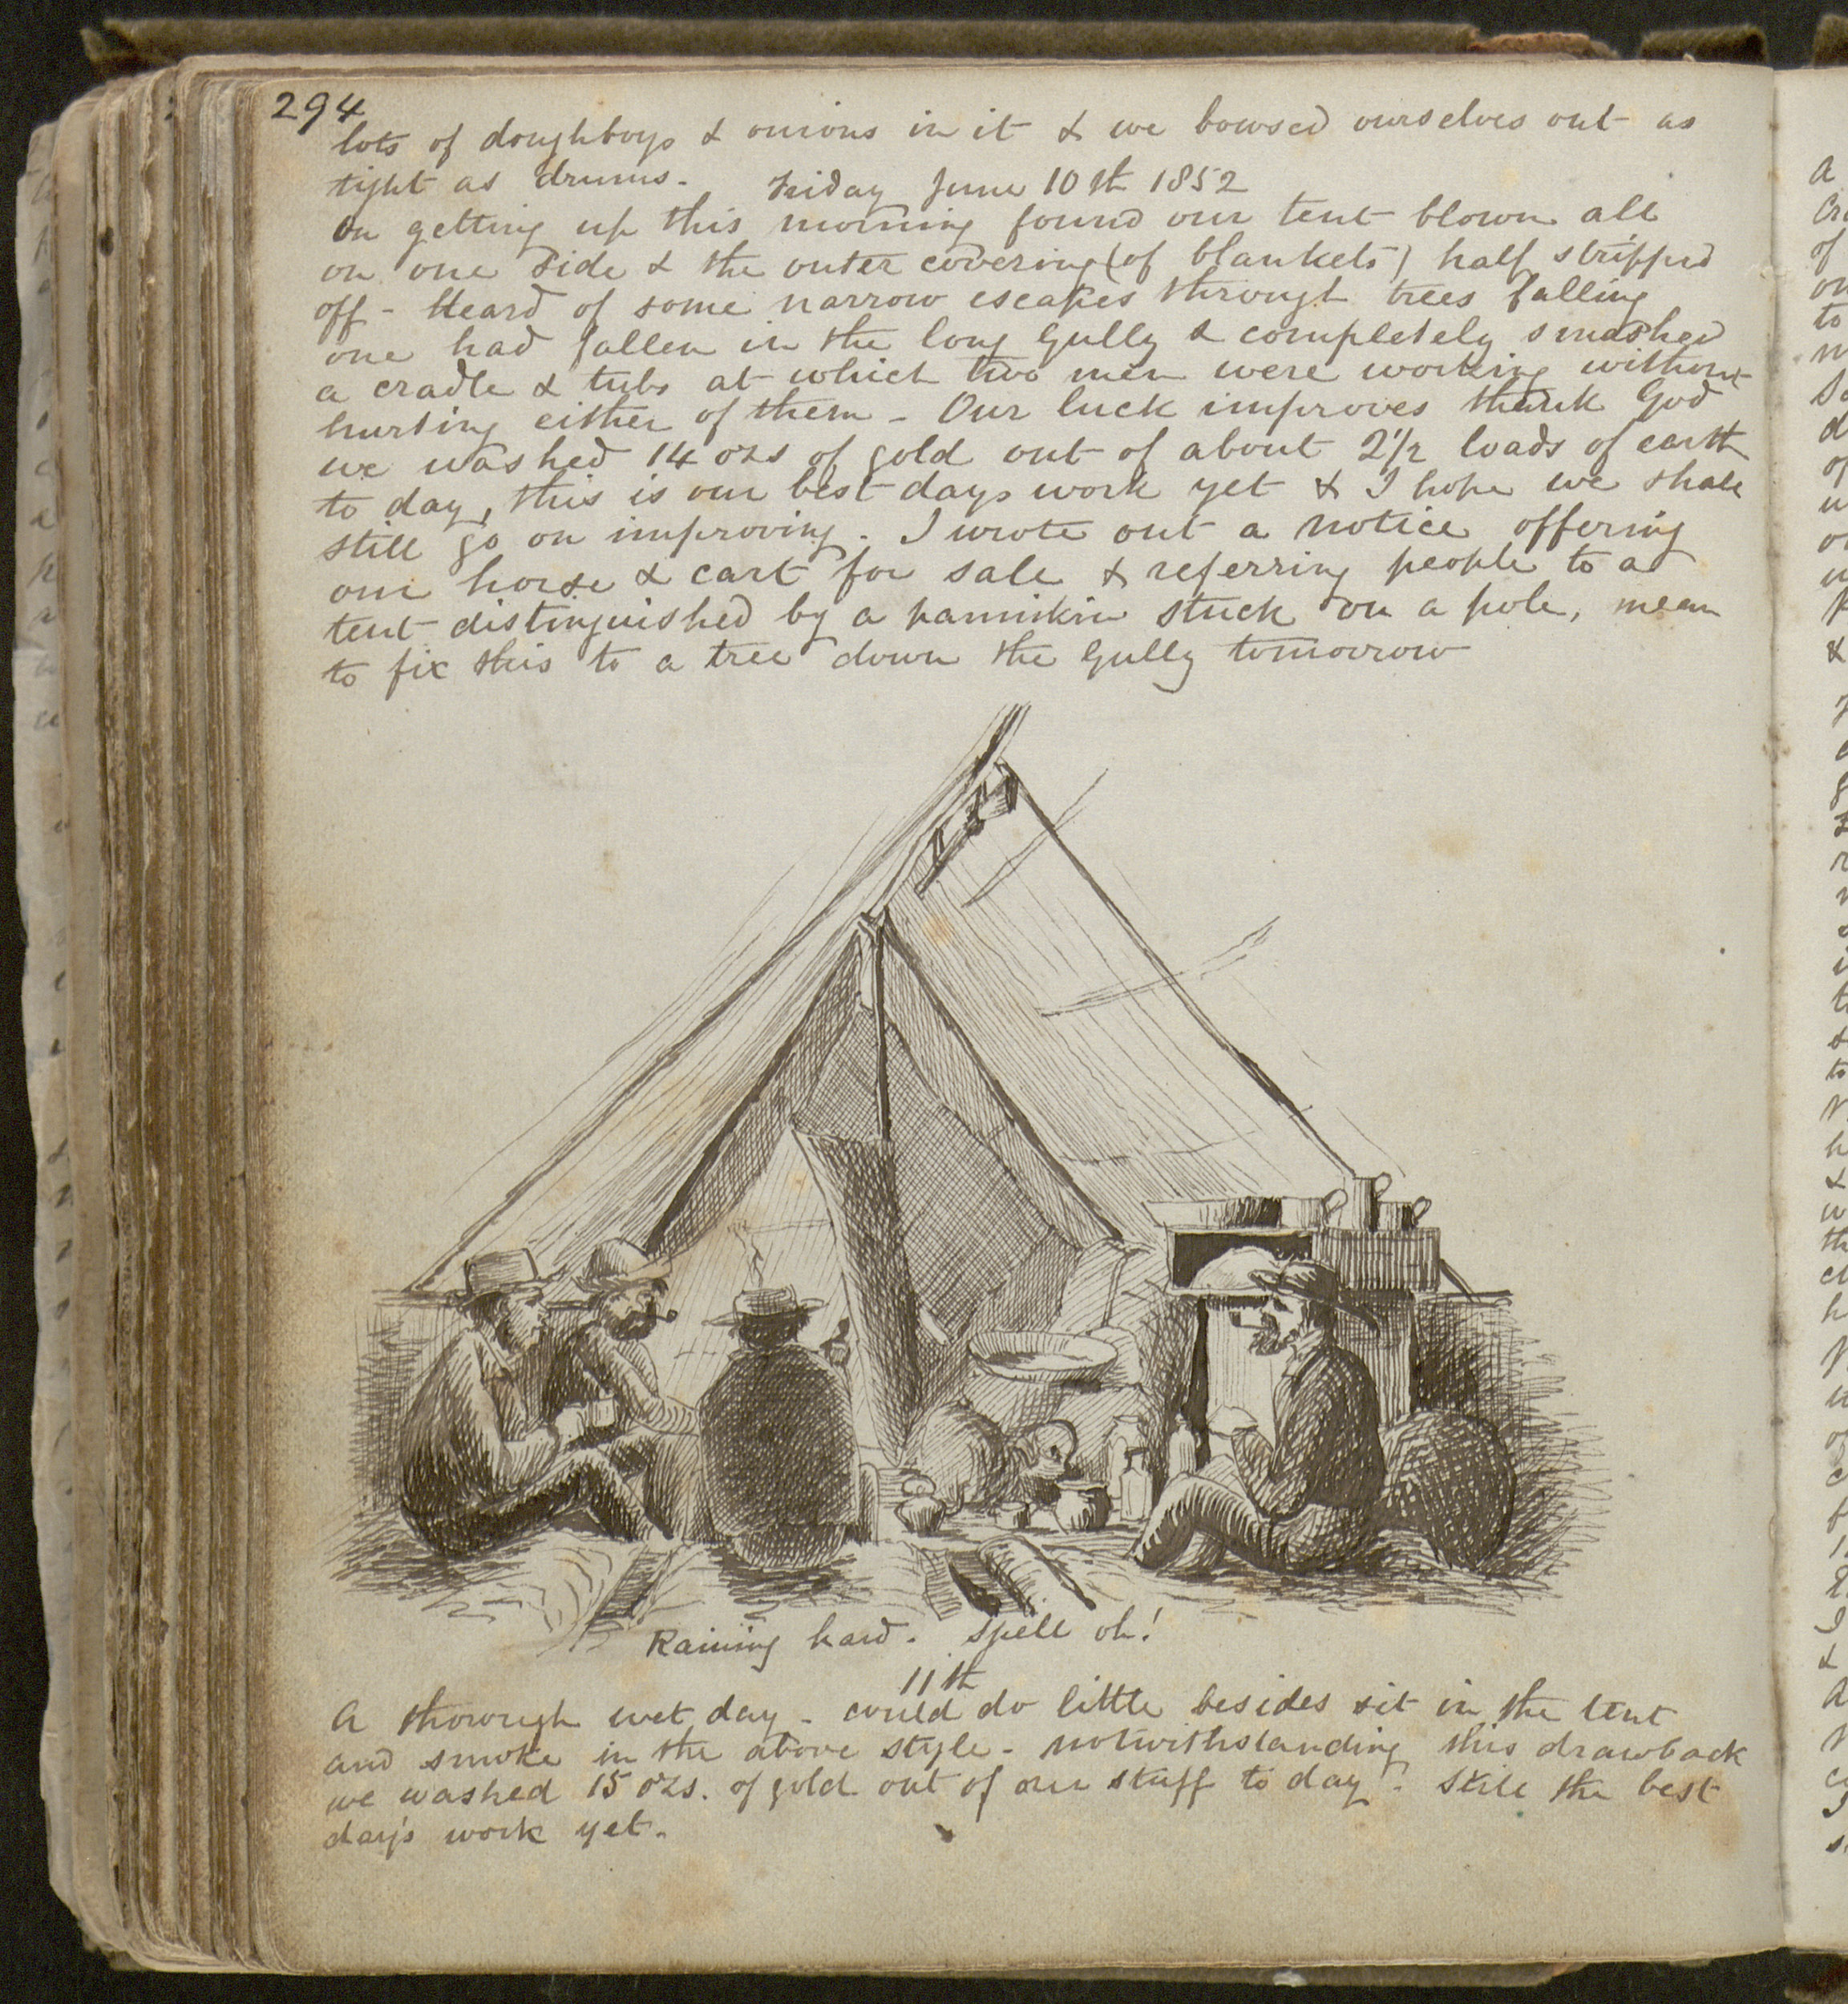 294
lots of doughboys & onions in it & we bowsed ourselves out as
tight as drums. Friday June 10th 1852
On getting up this morning found our tent blown all
on one side & the outer covering (of blankets) half stripped
off - Heard of some narrow escapes through trees falling
one had fallen in the long Gully & completely smashed
a cradle & tubs at which two men were working without
hurting either of them - Our luck improves thank God
we washed 14 ozs of gold out of about 2 1/2 loads of earth
to day, this is our best days work yet & I hope we shall
still go on improving. I wrote out a notice offering
our horse & cart for sale & referring people to a
tent distinguished by a pannikin stuck on a pole, mean
to fix this to a tree down the Gully tomorrow
Raining hard. Spell oh!
11th
A thorough wet day - could do little besides sit in the tent
and smoke in the above style - notwithstanding this drawback
we washed 15 ozs. of gold out of our stuff to day. Still the best
day's work yet.